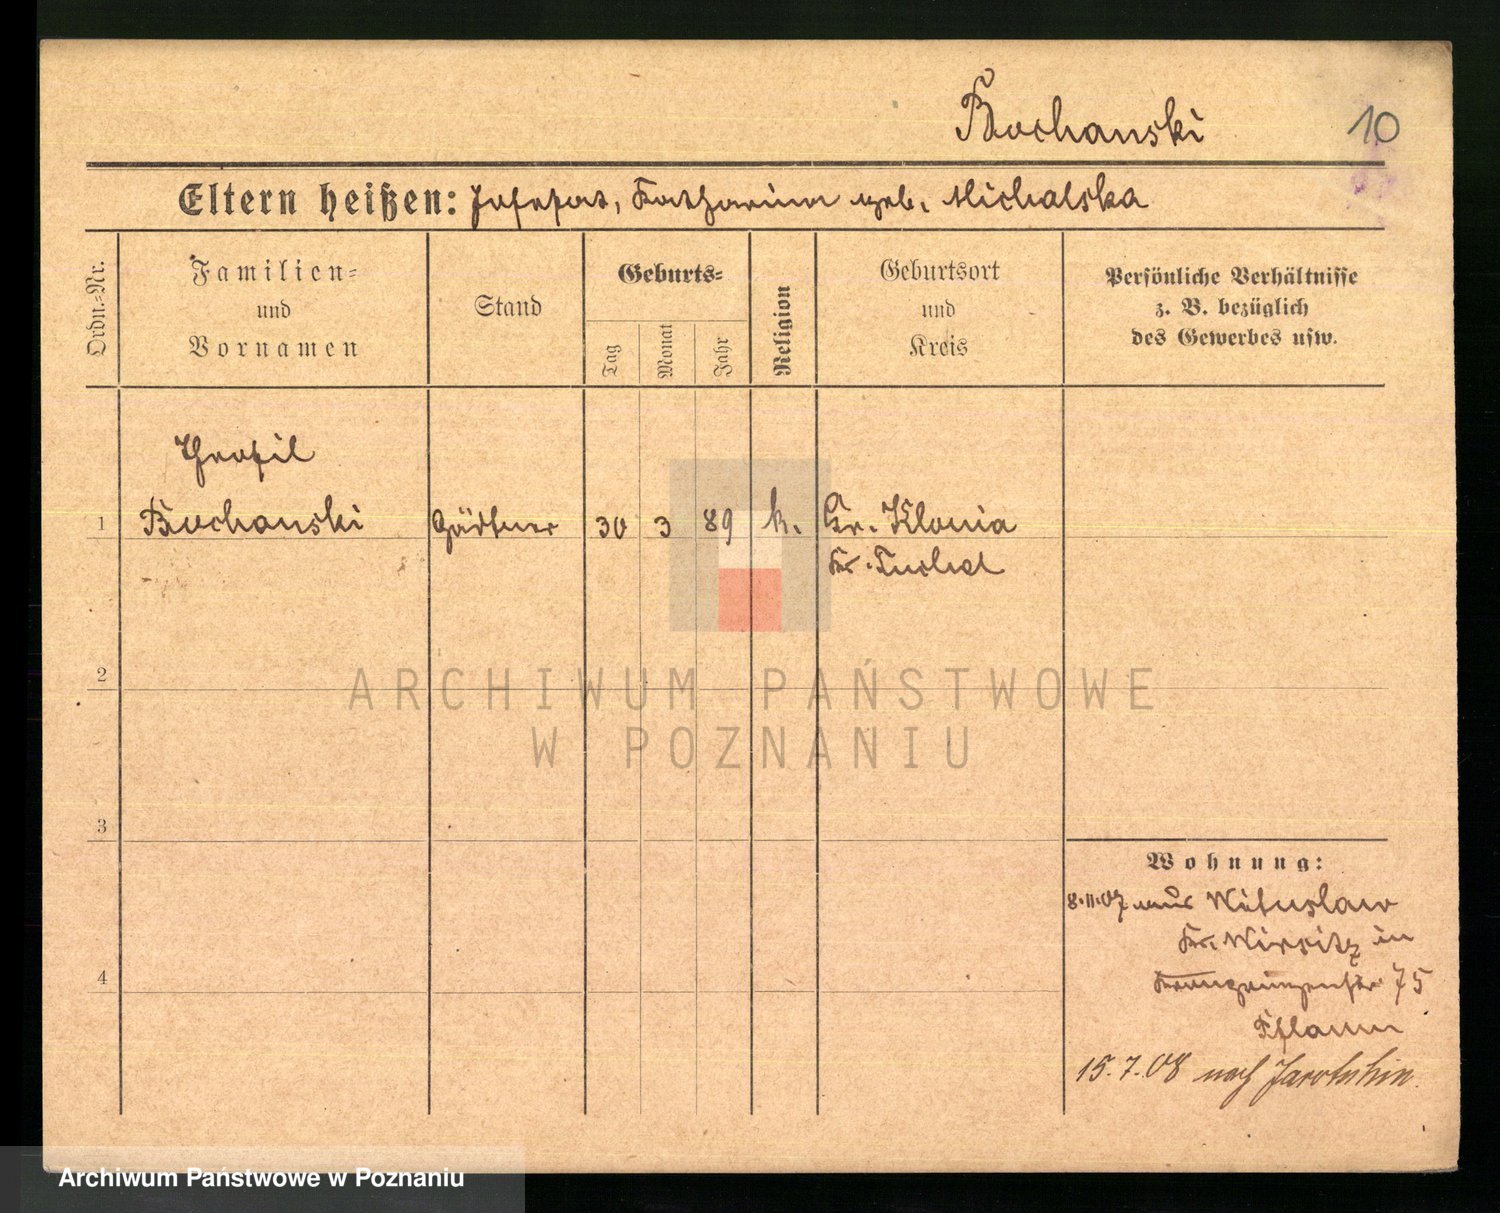 Bochanski
10
Eltern heißen: Josefat, Katharina geb. Michalska
Ordn.-Nr.
Familien-
und
Vornamen
Stand
Geburts-
Tag
Monat
Jahr
Religion
Geburtsort
und
Kreis
Persönliche Verhältnisse
z. B. bezüglich
des Gewerbes usw.
Teofil
1 Bochanski Gärtner 30 3 89 k. Gr. Klonia
Kr. Tuchel
2
ARCHIWUM PAŃSTWOWE
W POZNANIU
3
Wohnung:
8.11.07 aus Witoslaw
Kr. Wirsitz in
4
Kronprinzenstr 75
Pflaum
15.7.08 nach Jarotschin.
Archiwum Państwowe w Poznaniu